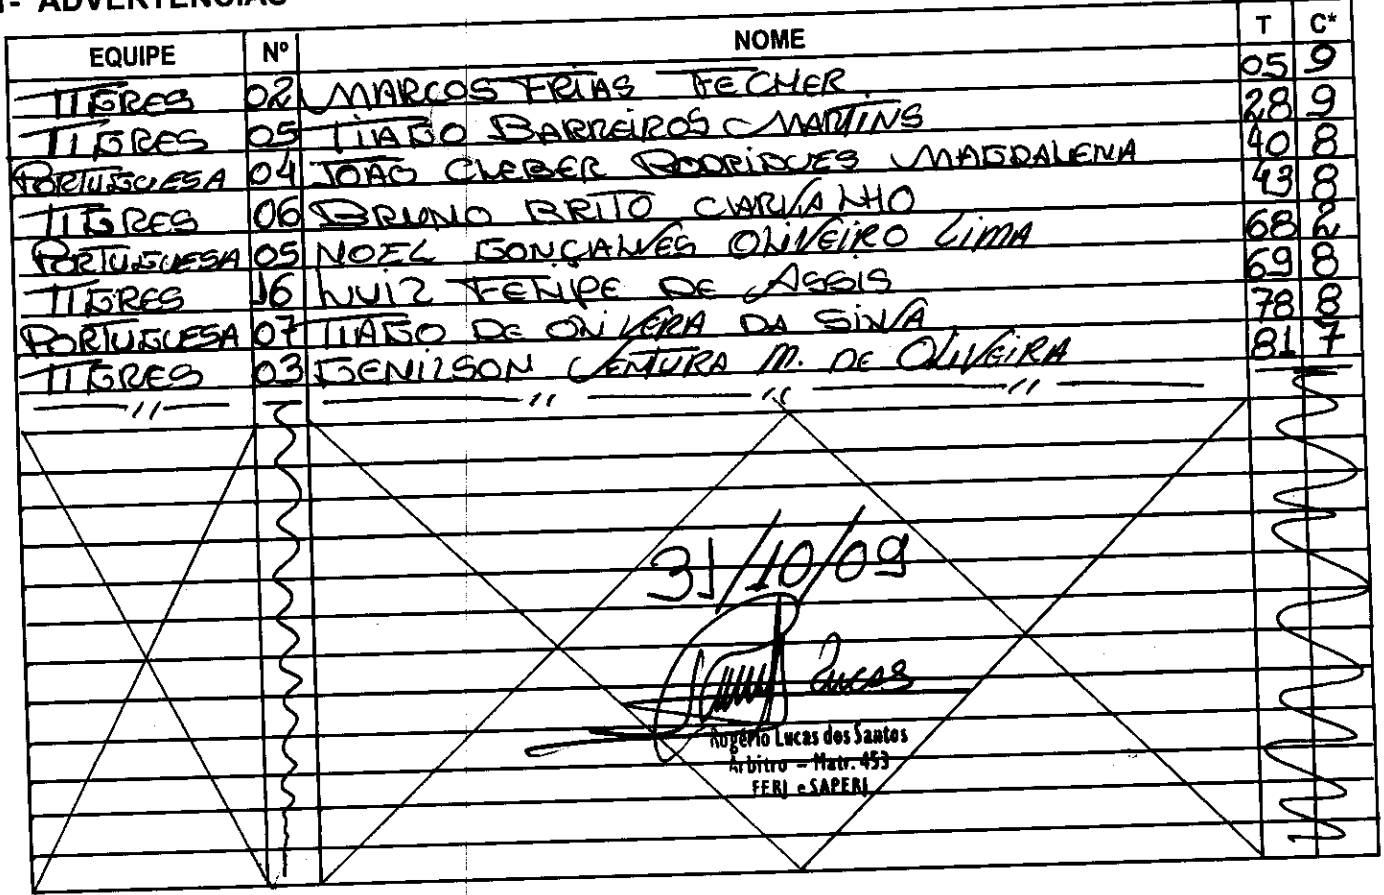 1- ADVERTÊNCIAS
EQUIPE Nº NOME T C*
TIGRES 02 MARCOS FRIAS FECHER 05 9
TIGRES 05 TIAGO BARREIROS MARTINS 28 9
PORTUGUESA 04 JOÃO CLEBER RODRIGUES MAGDALENA 40 8
TIGRES 06 BRUNO BRITO CARVALHO 43 8
PORTUGUESA 05 NOEL GONÇALVES OLIVEIRO LIMA 68 2
TIGRES 16 LUIZ FELIPE DE ASSIS 69 8
PORTUGUESA 07 TIAGO DE OLIVERA DA SILVA 78 8
TIGRES 03 GENILSON VENTURA M. DE OLIVEIRA 81 7
31/10/09
Lucas
Rogério Lucas dos Santos
Árbitro - Matr. 453
FERJ e SAPERJ